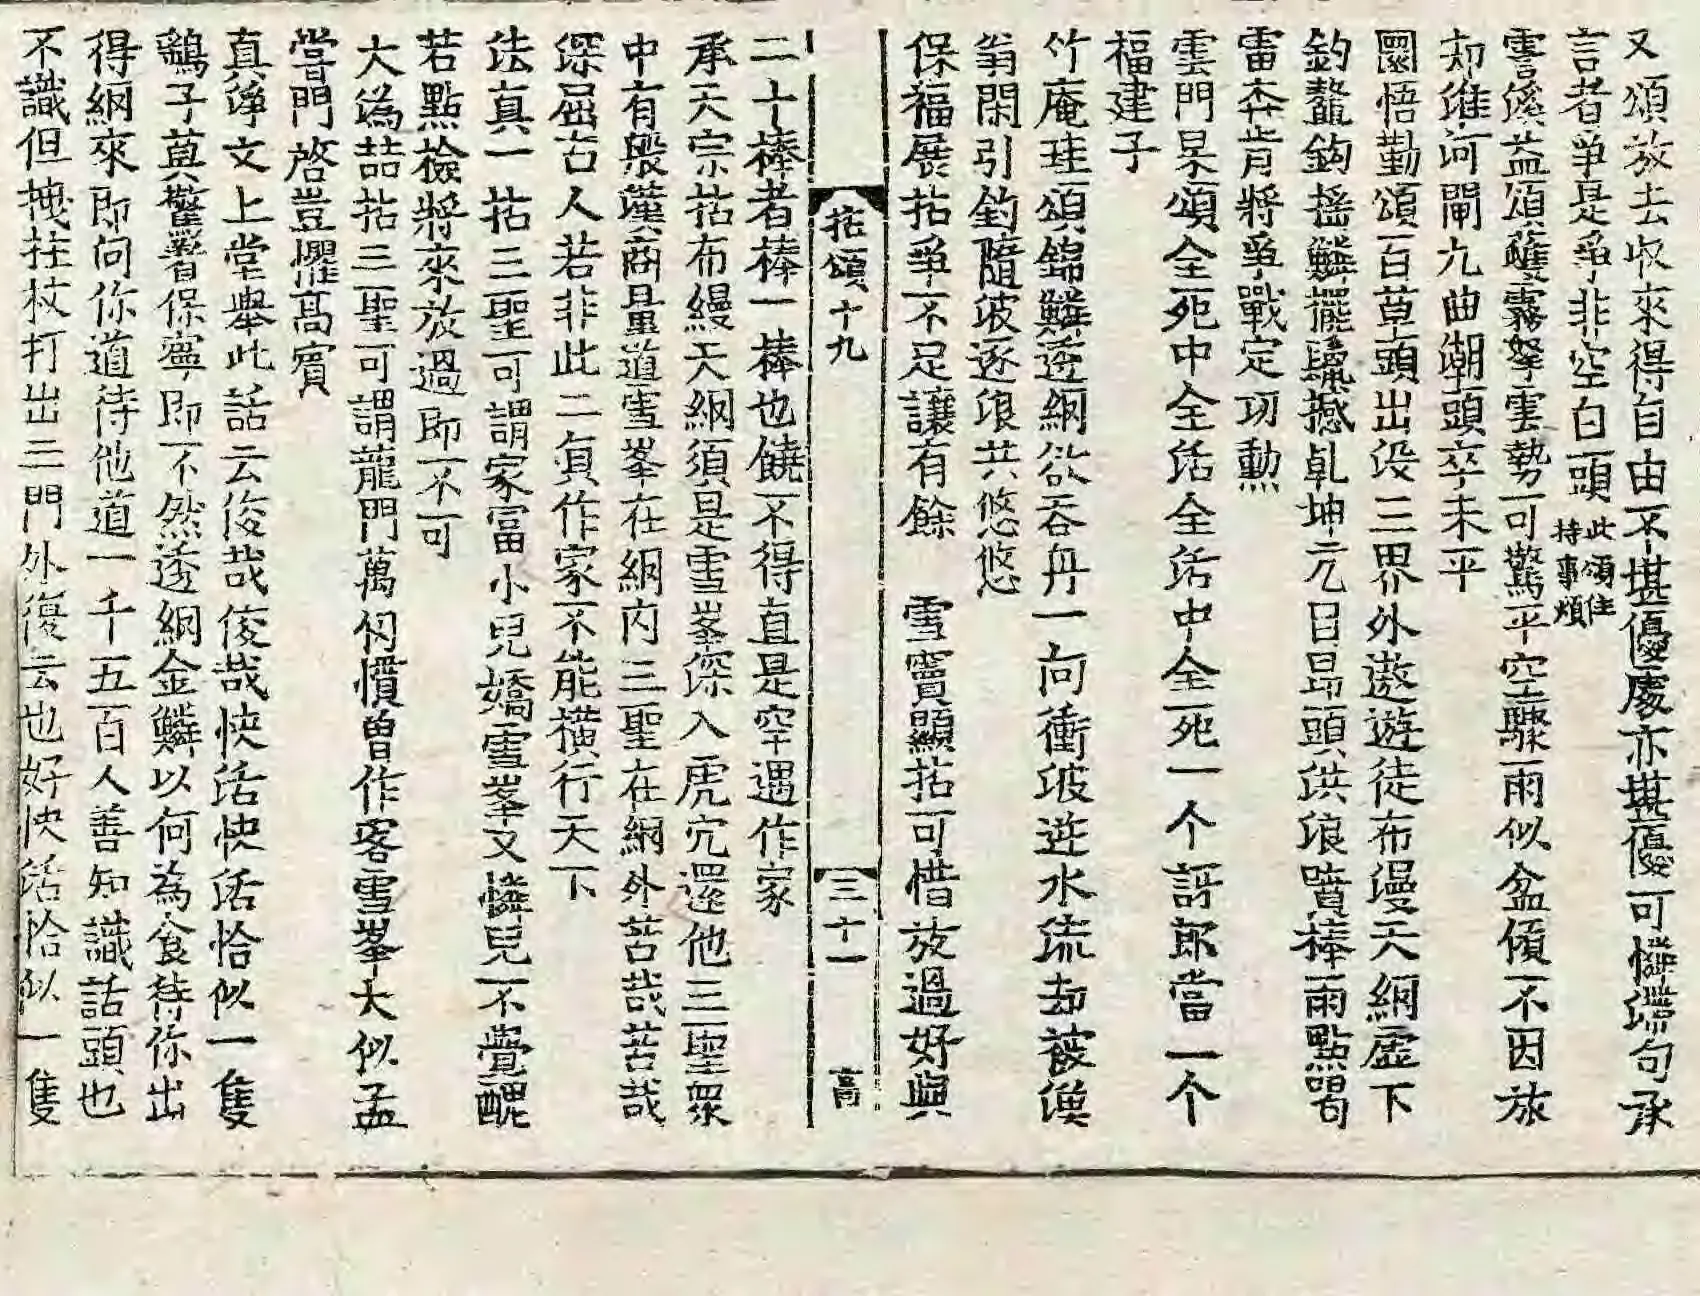 又頌放去收來得自由不堪優處亦堪優可憐瑞句承
言者爭是爭非空白頭此頌住持事煩
雪溪益頌䕶霧拏雲勢可驚平空驟雨似盆傾不因放
却淮河閘九曲潮頭卒未平
圜悟勤頌百草頭出沒三界外遨遊徒布漫天網虛下
釣鼇鉤搖鱗擺鬣撼乾坤亢目昂頭洪浪噴棒雨點喝
雷奔肯將爭戰定功勳
雲門杲頌全死中全活全活中全死一个訝郎當一个
福建子
竹庵珪頌錦鱗透網欲吞舟一向衝波逆水流却被漁
翁閑引釣隨波逐浪共悠悠
保福展拈爭不足讓有餘　雪竇顯拈可惜放過好與
拈頌十九　三十一　高
二十棒者棒一棒也饒不得直是罕遇作家
承天宗拈布縵天網須是雪峯深入虎宂還他三聖衆
中有般漢商量道雪峯在網內三聖在網外苦哉苦哉
深屈古人若非此二真作家不能橫行天下
法真一拈三聖可謂家富小兒嬌雪峯又憐兒不覺醜
若點檢將來放過即不可
大潙喆拈三聖可謂龍門萬仞慣曾作客雪峯大似孟
甞門啓豈懼高賓
真淨文上堂舉此話云俊哉俊哉快活快活恰似一隻
鷂子莫驚着保寧即不然透網金鱗以何爲食待你出
得網來即向你道待他道一千五百人善知識話頭也
不識但拽拄杖打出三門外復云也好快活恰似一隻